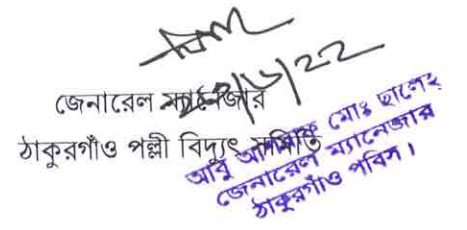 জেনারেল ম্যানেজার
ঠাকুরগাঁও পল্লী বিদ্যুৎ সমিতি
আবু মোঃ ছালেহ
জেনারেল ম্যানেজার
ঠাকুরগাঁও পবিস।